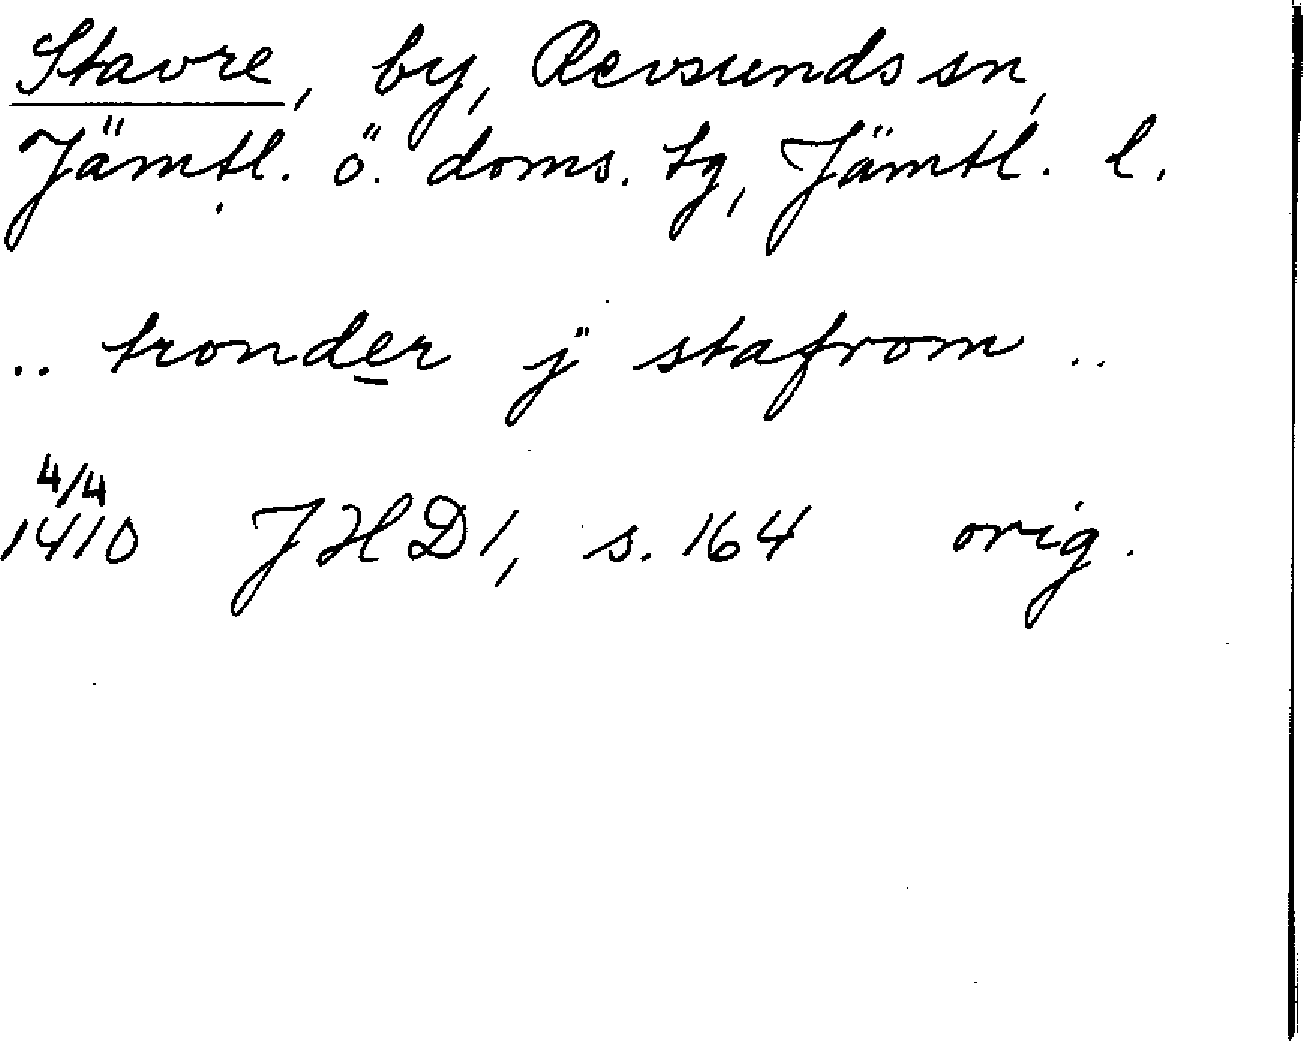 Stavre, by, Revsunds sn,
Jämtl. ö. doms. tg, Jämtl. l.
.. tronder j stafrom ..
4/4
1410 JHD 1, s. 164 orig.